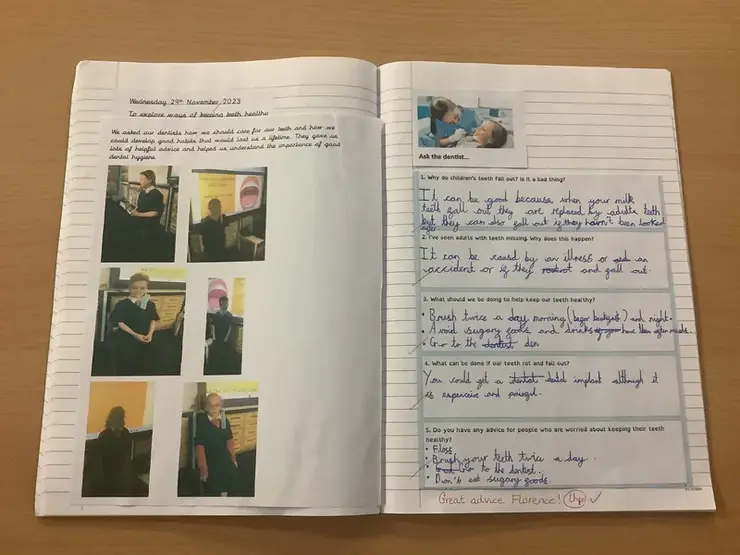 Wednesday 29th November 2023
To explore ways of keeping teeth healthy
We asked our dentists how we should care for our teeth and how we
could develop good habits that would last us a lifetime. They gave us
lots of helpful advice and helped us understand the importance of good
dental hygiene.
Ask the dentist...
1. Why do children's teeth fall out? Is it a bad thing?
It can be good because when your milk
teeth fall out they are replaced by adults teeth
but they can also fall out if they havn't been looked
after
2. I've seen adults with teeth missing. Why does this happen?
It can be caused by an illness or an
accident or if they rot and fall out.
3. What should we be doing to help keep our teeth healthy?
• Brush twice a day morning (begor breakfast) and night.
• Avoid sugary foods and drinks have them after meals.
• Go to the dentist den
4. What can be done if our teeth rot and fall out?
You could get a dentist dental implant although it
is expensive and painful.
5. Do you have any advice for people who are worried about keeping their teeth
healthy?
• Floss
• Brush your teeth twice a day.
• Go to the dentist.
• Don't eat sugary foods.
Great advice Florence!